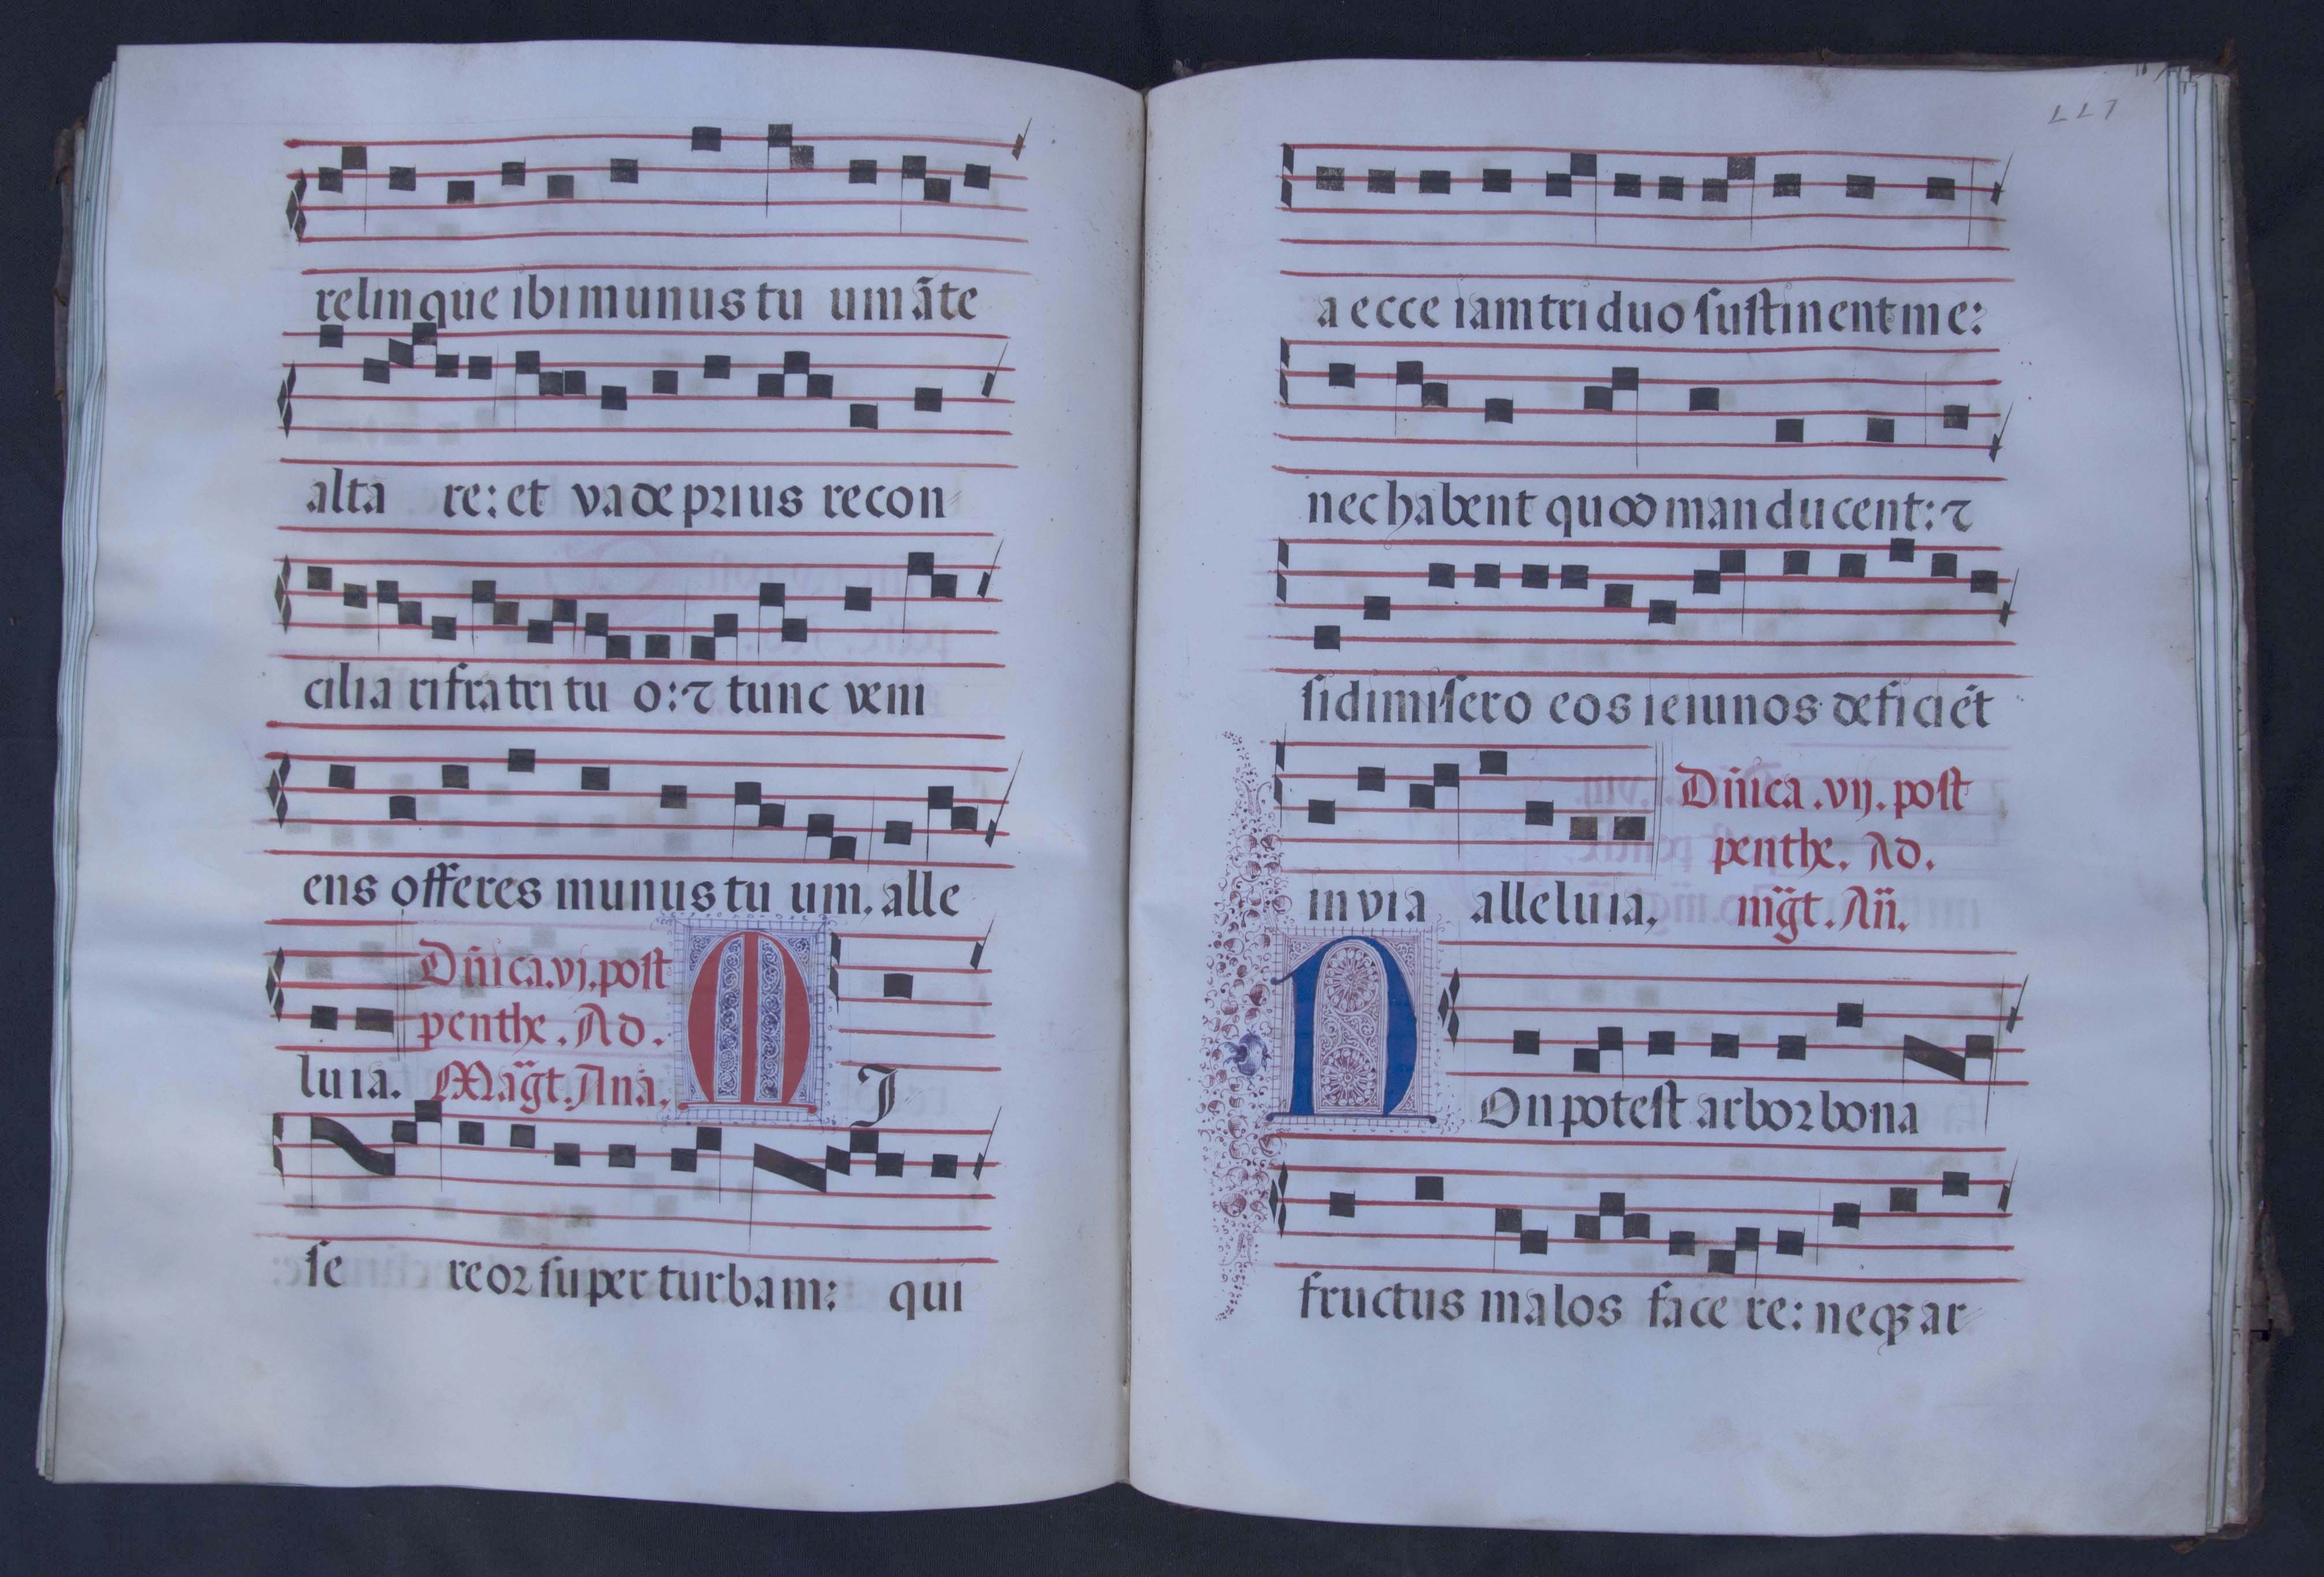 relinque ibi munus tu um ãte
alta re: et vade prius recon
cilia ri fratri tu o: ⁊ tunc veni
ens offeres munus tu um. alle
Dñica. vj. post
penthe. Ad.
luia. Mag̃t. Ana. M I
se reor super turbam: qui
a ecce iam tri duo sustinent me:
nec habent quod manducent: ⁊
si dimisero eos ieiunos deficiẽt
Dñica. vij. post
penthe. Ad.
in via alleluia. mg̃t. Añ.
N On potest arbor bona
fructus malos face re: neqꝫ ar